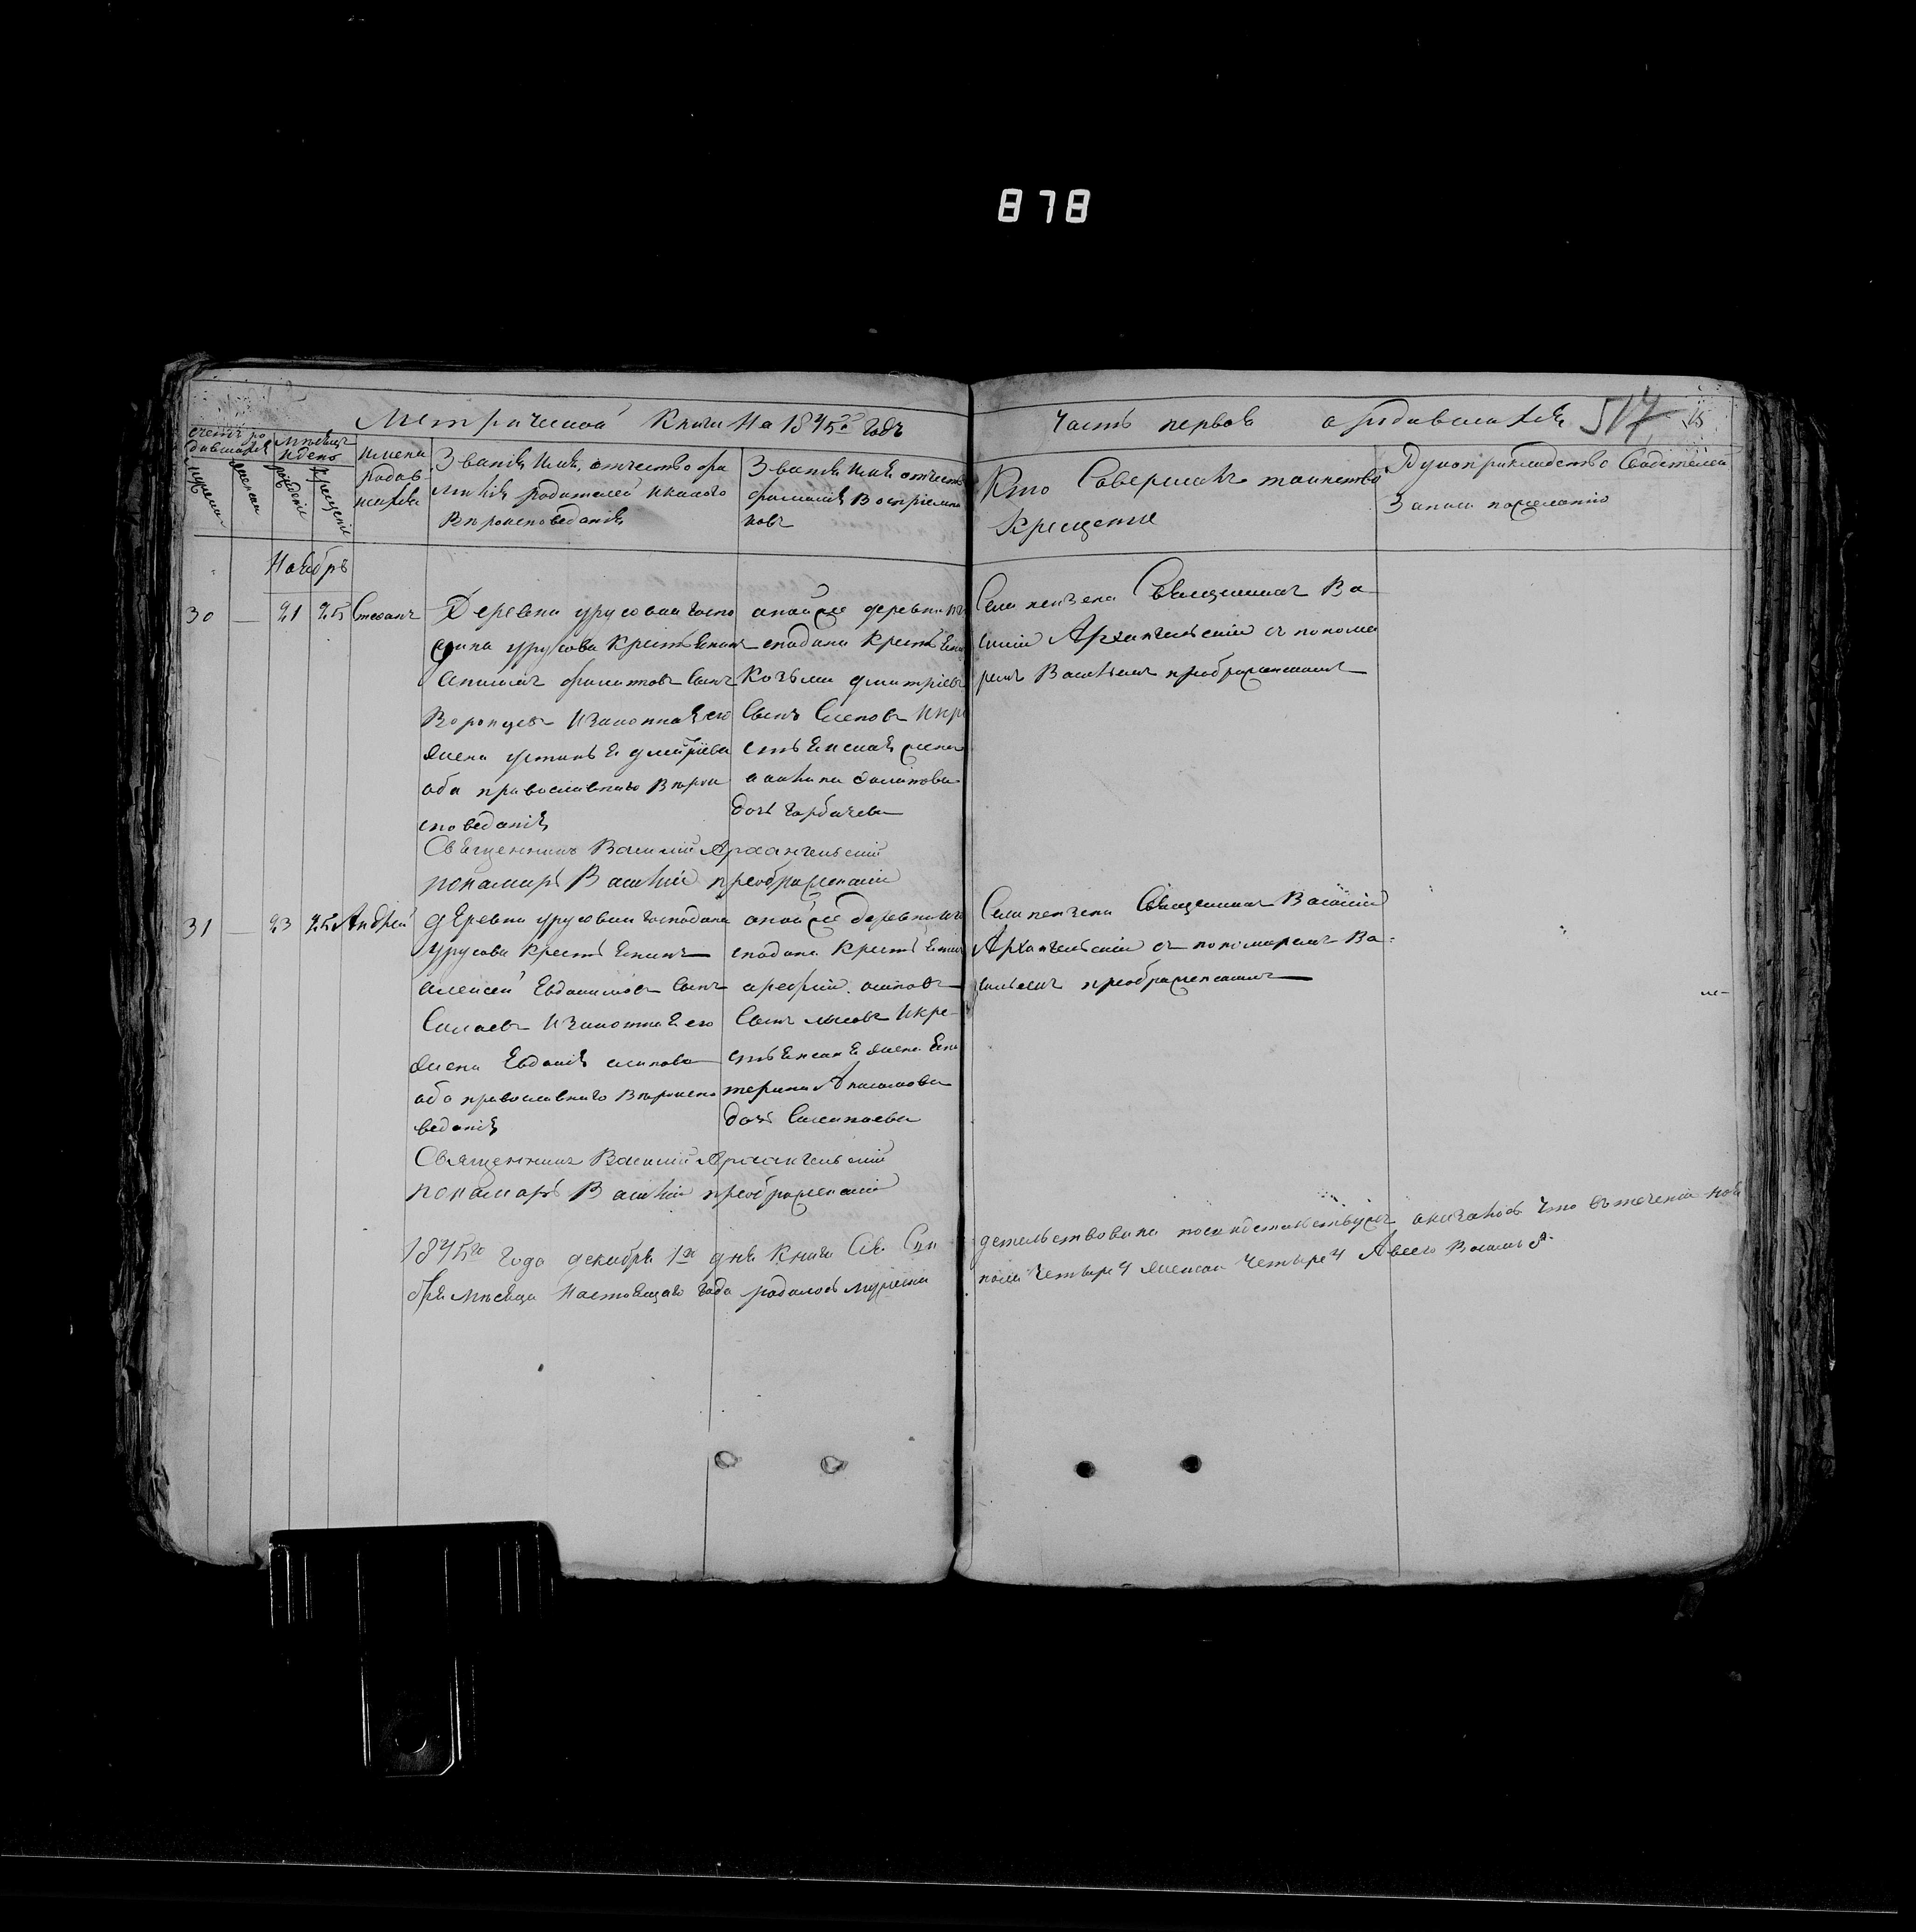 878
Метрической Книги На 1845й годъ
Часть первоя о родившихся 517 15
счетъ ро
дившихся
мужеска
женска
Мѣсяцъ
и день
рождение
крещение
Имена
родив
шихся
Звание Имя, отчество фа
милия родителей и какого
Вѣроисповедания
Звание Имя отчеств
фамилия Воспрiемни
ковъ
Кто Совершалъ таинство
Крещение
Рукоприкладство Свидетелей
Записи пожеланiю
Ноябрь
30 — 21 25 Стефанъ
Деревни урусовки Госпо
дина урусова Крестьянинъ
филиповъ Сынъ
Воронцевъ И Законная его
Жена устинья дмитрiева
оба православнаго Вѣрои
споведания
оной же деревни го
сподина Крестьяни
Козьма дмитрiевъ
Сынъ И кре
стьянская жена
филипова
дочь Горбачева
Села Священникъ Ва
силiй Архангельскiй съ понома
ремъ Васильемъ преображенскимъ
Священникъ Василий Архангельскiй
понамарь Василiй преображенскiй
31 — 23 25 Андрей
деревни урусовки Господина
урусова Крестьянинъ
Алексей Евдокимовъ Сынъ
И Законная его
Жена Евдокия
оба православнаго Вѣроиспо
ведания
оной же деревни го
сподина Крестьянин
арефий осиповъ
Сынъ И кре
стьянская жена Ека
терина
дочь
Села Священникъ Василiй
Архангельскiй съ пономаремъ Ва
сильемъ преображенскимъ
Священникъ Василий Архангельскiй
понамарь Василiй преображенскiй
1845го Года декабря 1го дня Книга Сiя Сви
детельствована оказалось Что въ теченiи ноя
бря Мѣсяца Настоящаго Года родилось мужеска
пола Четыре 4 женска Четыре 4 А всего Восемь 8.